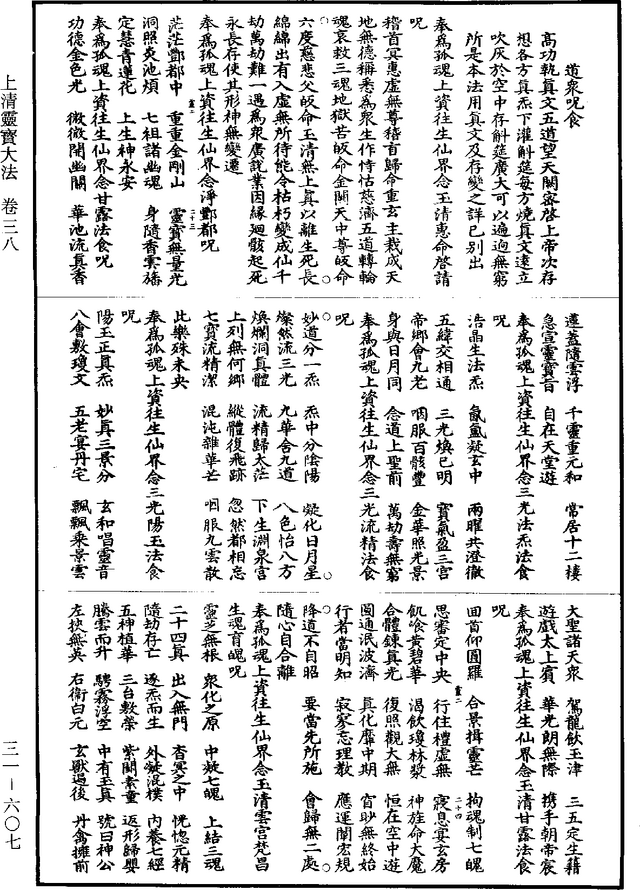 道衆呪食
高功執真文五道望天門密啓上帝次存
想各方真炁下灌斛筵每方燒真文達立
吹灰於空中存斛筵廣大可以遍迊無窮
所是本法用真文及存變之詳已別出
奉爲孤魂上資往生仙界念玉清惠命啓請
呪
稽首冥慧虛無尊稽首歸命重玄主裁成天
地無德稱悉爲衆生作恃怙慈濟五道轉輪
魂哀救三魂地獄苦皈命金闕天中尊皈命
六度慈悲父皈命玉清無上真以離生死長
綿綿出有入虛無所待能令枯朽變成仙千
劫萬劫難一遇爲衆廣說業因緣廻骸起死
永長存使其形神無變遷
奉爲孤魂上資往生仙界念淨酆都呪
茫茫酆都中 重重金剛山 靈寶無量光
洞照炎池煩 七祖諸幽魂 身隨香雲旛
定慧青蓮花 上生神永安
奉爲孤魂上資往生仙界念甘露法食呪
功德金色光 微微開幽關 華池流真香
蓮蓋隨雲浮 千靈重元和 常居十二樓
急宣靈寶旨 自在天堂遊
奉爲孤魂上資往生仙界念三光法炁法食
呪
浩晶生法炁 氤氳凝玄中 兩曜共澄徹
五緯交相通 三光煥已明 寶氣盈三宮
帝鄉會九老 咽服百骸豐 金華照光景
身與日月同 念道上聖前 萬劫壽無窮
奉爲孤魂上資往生仙界念三光流精法食
呪
妙道分一炁 炁中分陰陽 凝化日月星
燦然流三光 九華含九道 八色怡八方
煥爛洞真體 流精歸太茫 下生淵泉宮
上列無何鄉 縱體復飛跡 忽然都相忘
七寶流精潔 混沌雜華芒 咽服九雲散
此樂殊未央
奉爲孤魂上資往生仙界念三光陽玉法食
呪
陽玉正真炁 妙真三景分 玄和唱靈音
八會敷瓊文 五老宴丹宅 飄飄乘景雲
大聖諸天衆 駕龍飲玉津 三五定生籍
遊戲太上賓 華光朗無際 携手朝帝宸
奉爲孤魂上資往生仙界念玉清甘露法食
呪
回首仰圓羅 合景揖靈芒 拘魂制七魄
思審定中央 行住禮虛無 寢息冥玄房
飢飡黄碧華 渴飲瓊林漿 神旌命大魔
合體鍊真光 復照觀大無 恒在空中遊
圓通泯波濟 真化靡中期 窅眇無終始
行者當明知 寂寥忘理散 應運闡宏規
降道不自昭 要當先所施 會歸無二處
隨心自合離
奉爲孤魂上資往生仙界念玉清雲宮梵昌
生魂育魄呪
靈芝無根 衆化之原 中敷七魄 上結三魂
二十四真 出入無門 杳冥之中 恍惚元精
隨劫存亡 逐炁而生 外凝混樸 內養七經
五神植華 三台敷榮 紫闕素童 返形歸嬰
騰雲而升 騁霧浮空 中有玉真 號曰神公
左挾無英 右衛白元 玄獸過後 丹禽擁前
上清靈寶大法 卷三八
三一－六〇七